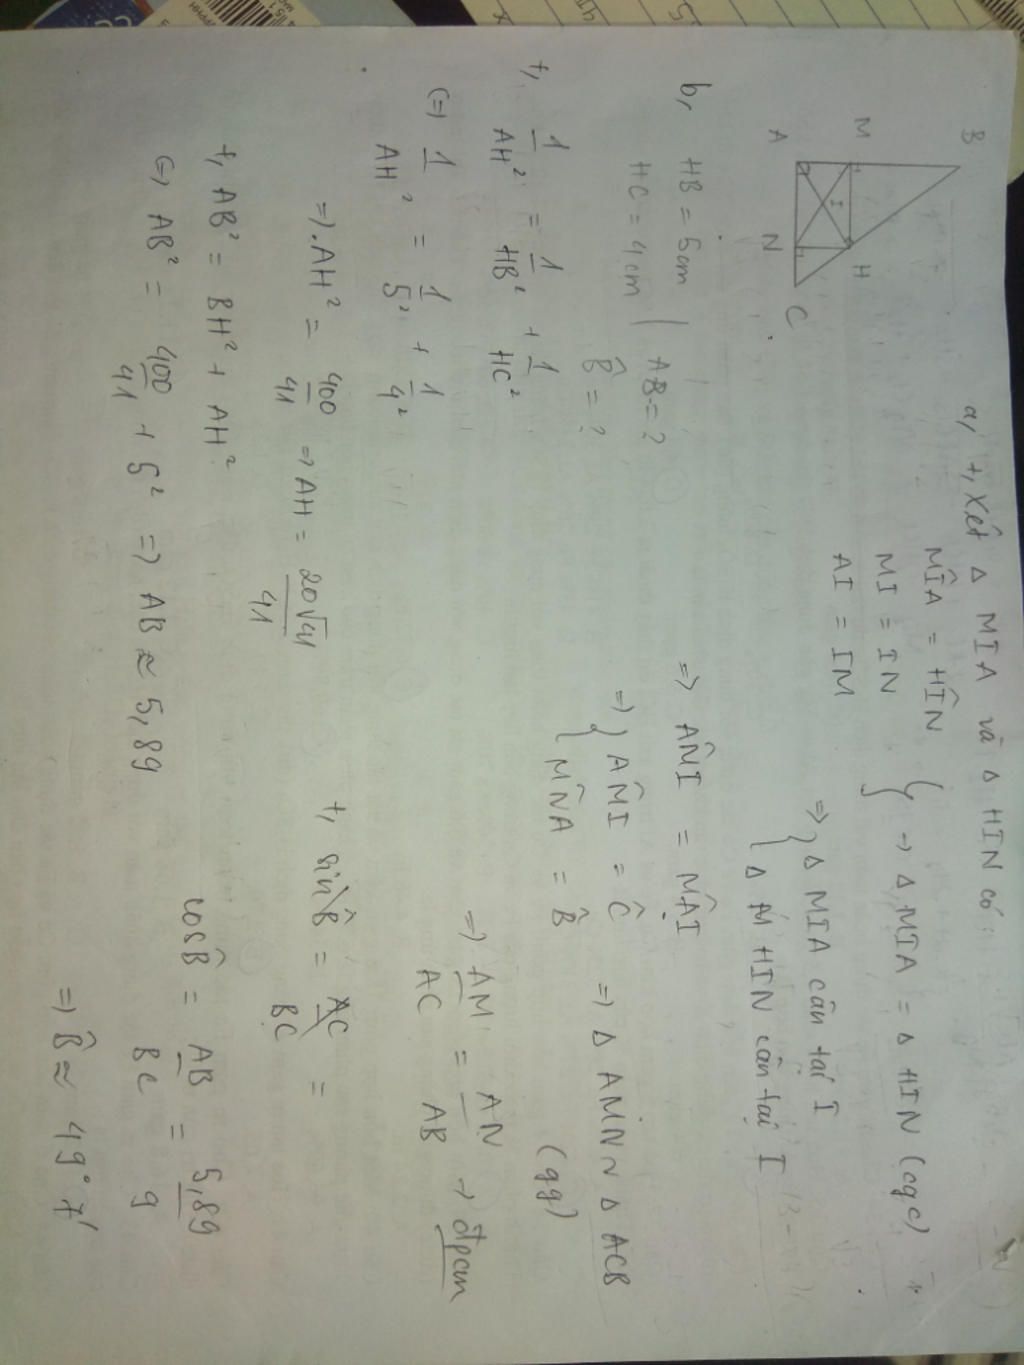 a, +, Xét Δ MIA và Δ HIN có:
MÎA = HÎN
MI = IN
AI = IM
→ Δ MIA = Δ HIN (cgc)
=> Δ MIA cân tại I
Δ HIN cân tại I
=> AM̂I = MÂI
=> AM̂I = Ĉ
MN̂A = B̂
=> Δ AMN ~ Δ ACB
(gg)
=> AM/AC = AN/AB → đpcm
B
M
H
I
A
N
C
b, HB = 5cm
HC = 4cm
AB = ?
B̂ = ?
+, 1/AH² = 1/HB² + 1/HC²
(=) 1/AH² = 1/5² + 1/4²
=) AH² = 400/41 => AH = 20√41/41
+, AB² = BH² + AH²
(=) AB² = 400/41 + 5² => AB ≈ 5,89
+, sin B̂ = AC/BC =
cos B̂ = AB/BC = 5,89/9
=> B̂ ≈ 49°7'